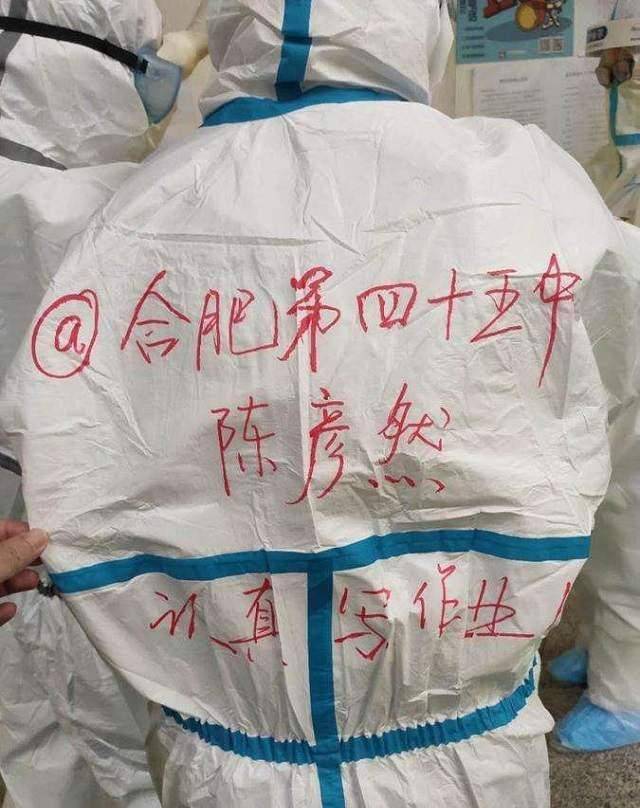 @合肥第四十五中
陈彦然
认真写作业！